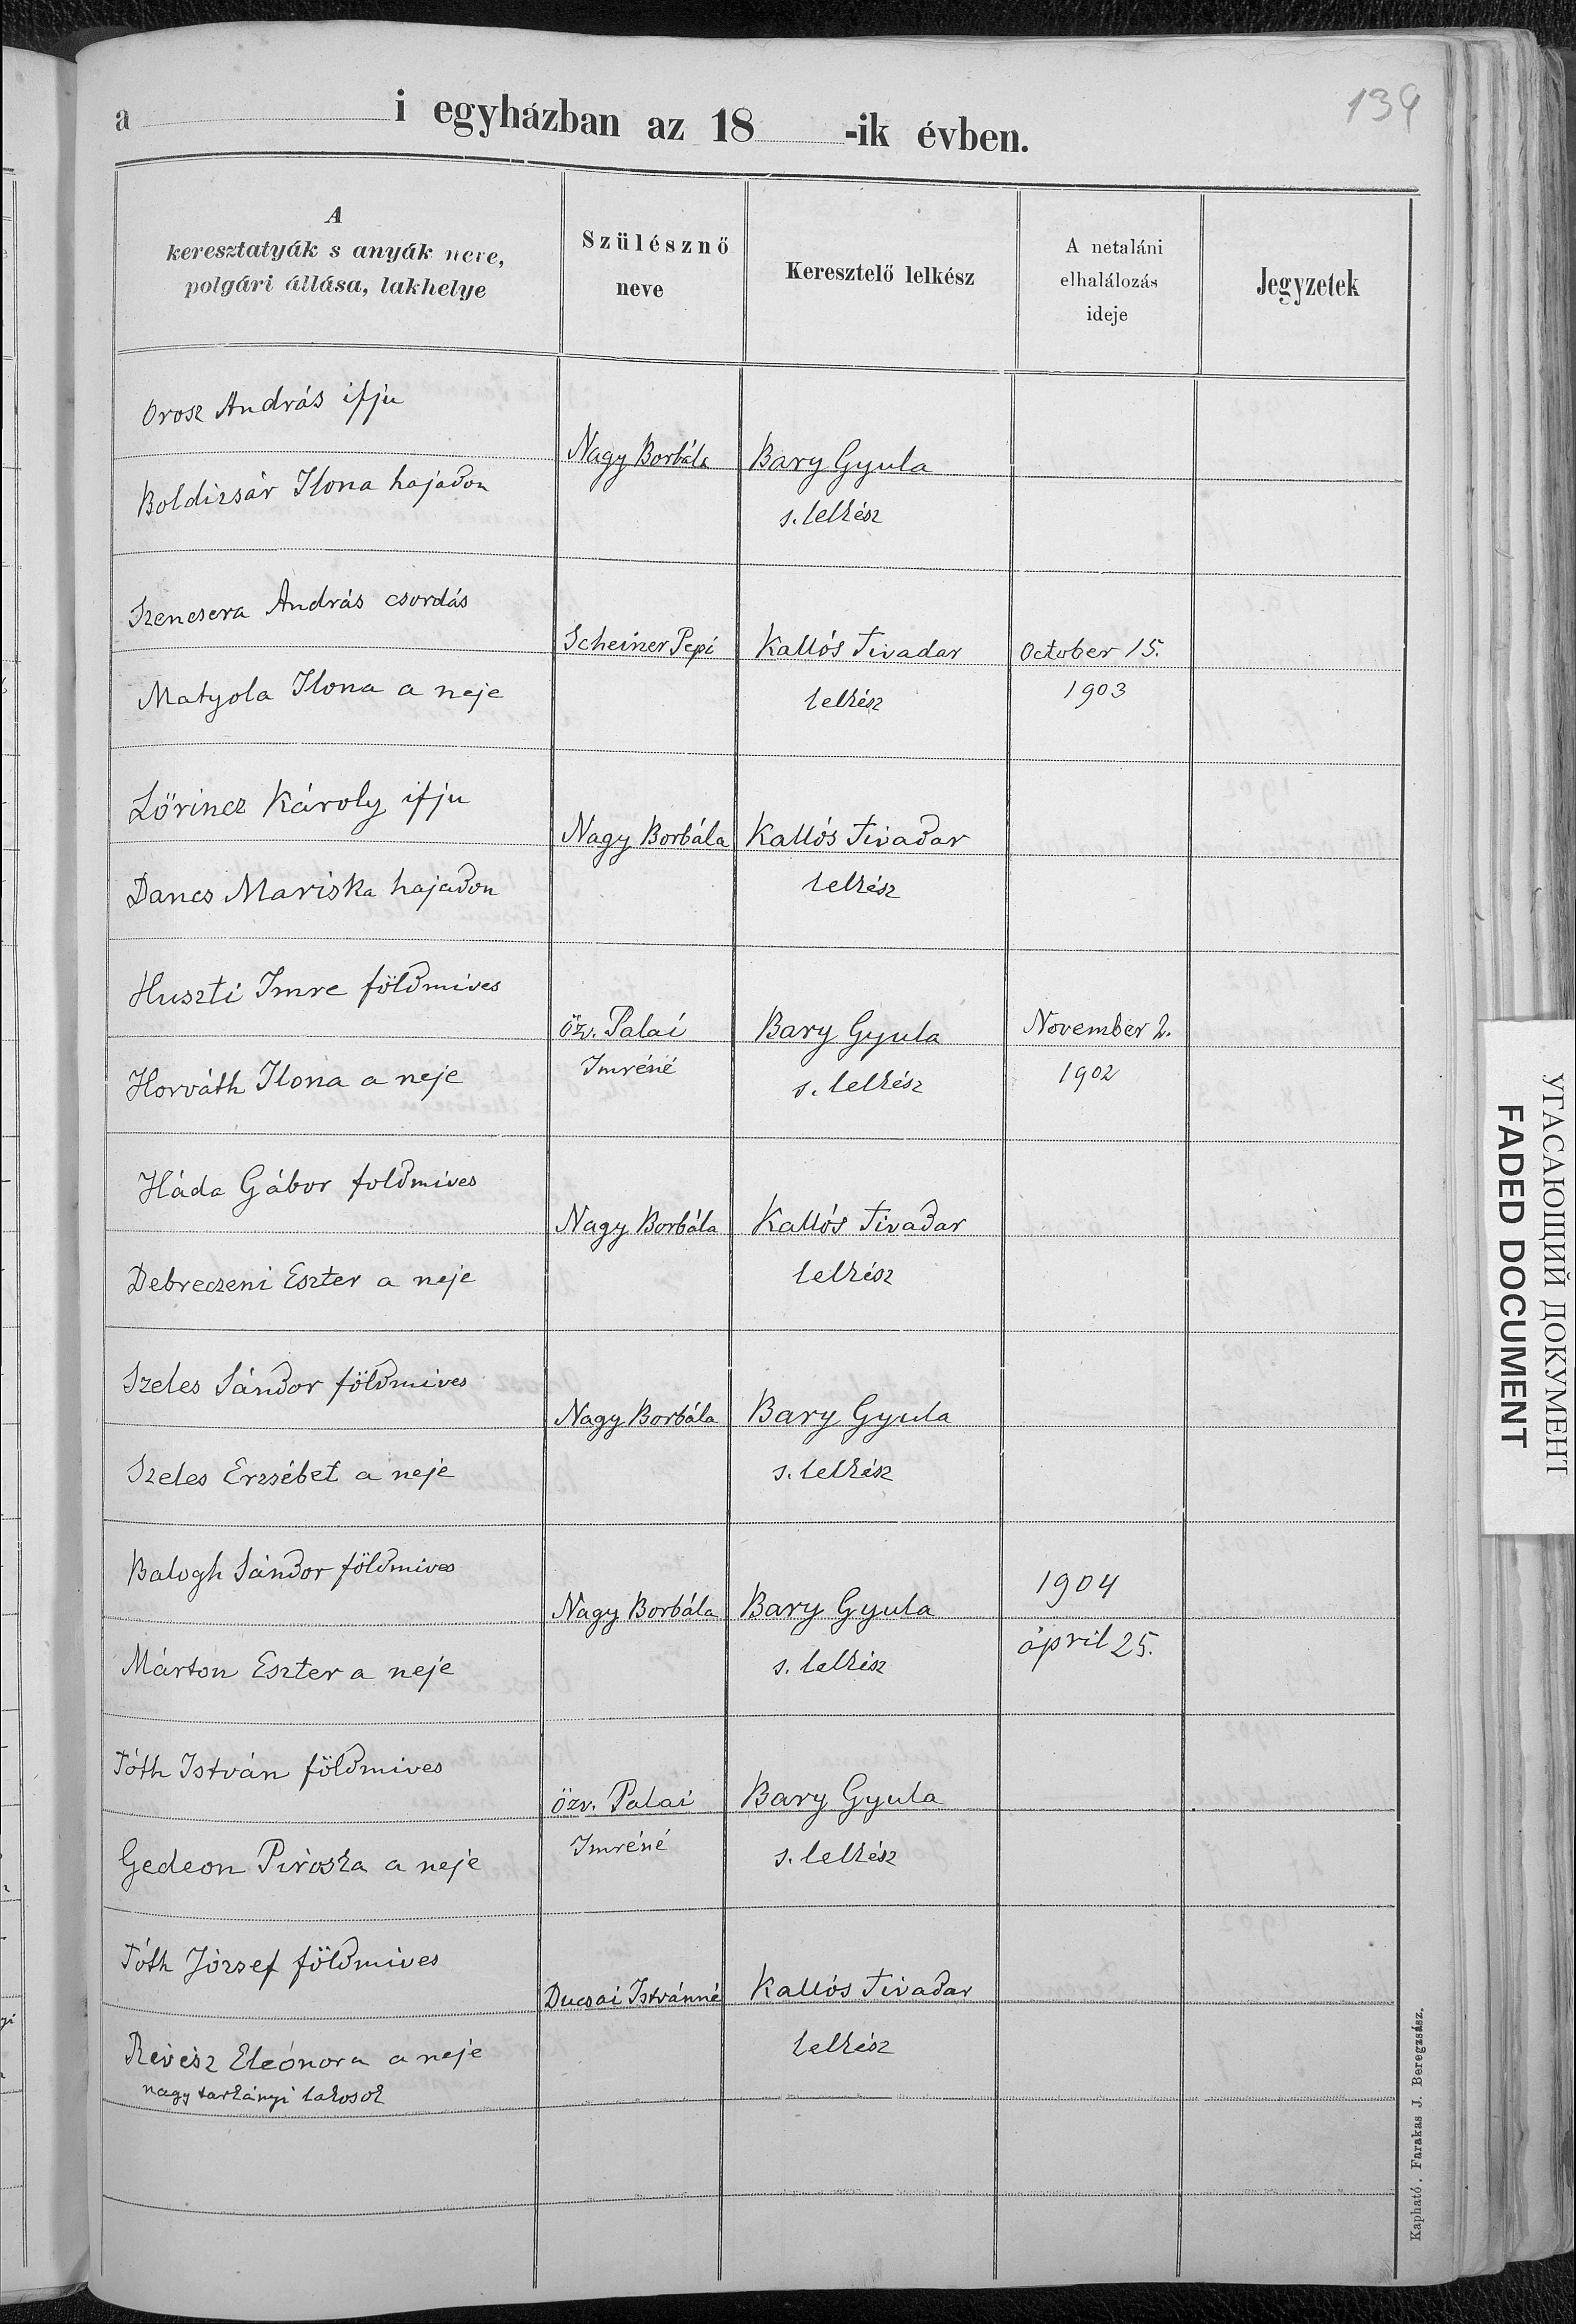 139
a i egyházban az 18 -ik évben.
A
keresztatyák s anyák neve,
polgári állása, lakhelye
Szülésznő
neve
Keresztelő lelkész
A netaláni
elhalálozás
ideje
Jegyzetek
Orosz András ifju
Boldizsár Ilona hajadon
Nagy Borbála
Bary Gyula
s. lelkész
Szencsera András csordás
Matyola Ilona a neje
Scheiner Pepi
Kallós Tivadar
lelkész
October 15.
1903
Lőrincz Károly ifju
Dancs Mariska hajadon
Nagy Borbála
Kallós Tivadar
lelkész
Huszti Imre földmives
Horváth Ilona a neje
özv. Palai
Imréné
Bary Gyula
s. lelkész
November 2.
1902
Háda Gábor foldmives
Debreczeni Eszter a neje
Nagy Borbála
Kallós Tivadar
lelkész
Szeles Sándor földmives
Szeles Erzsébet a neje
Nagy Borbála
Bary Gyula
s. lelkész
Balogh Sándor földmives
Márton Eszter a neje
Nagy Borbála
Bary Gyula
s. lelkész
1904
április 25.
Tóth István földmives
Gedeon Piroska a neje
özv. Palai
Imréné
Bary Gyula
s. lelkész
Tóth József földmives
Révész Eleónora a neje
nagy tarkányi lakosok
Ducsai Istvánné
Kallós Tivadar
lelkész
Kapható. Farakas J. Beregzsász.
УГАСАЮЩИЙ ДОКУМЕНТ
FADED DOCUMENT